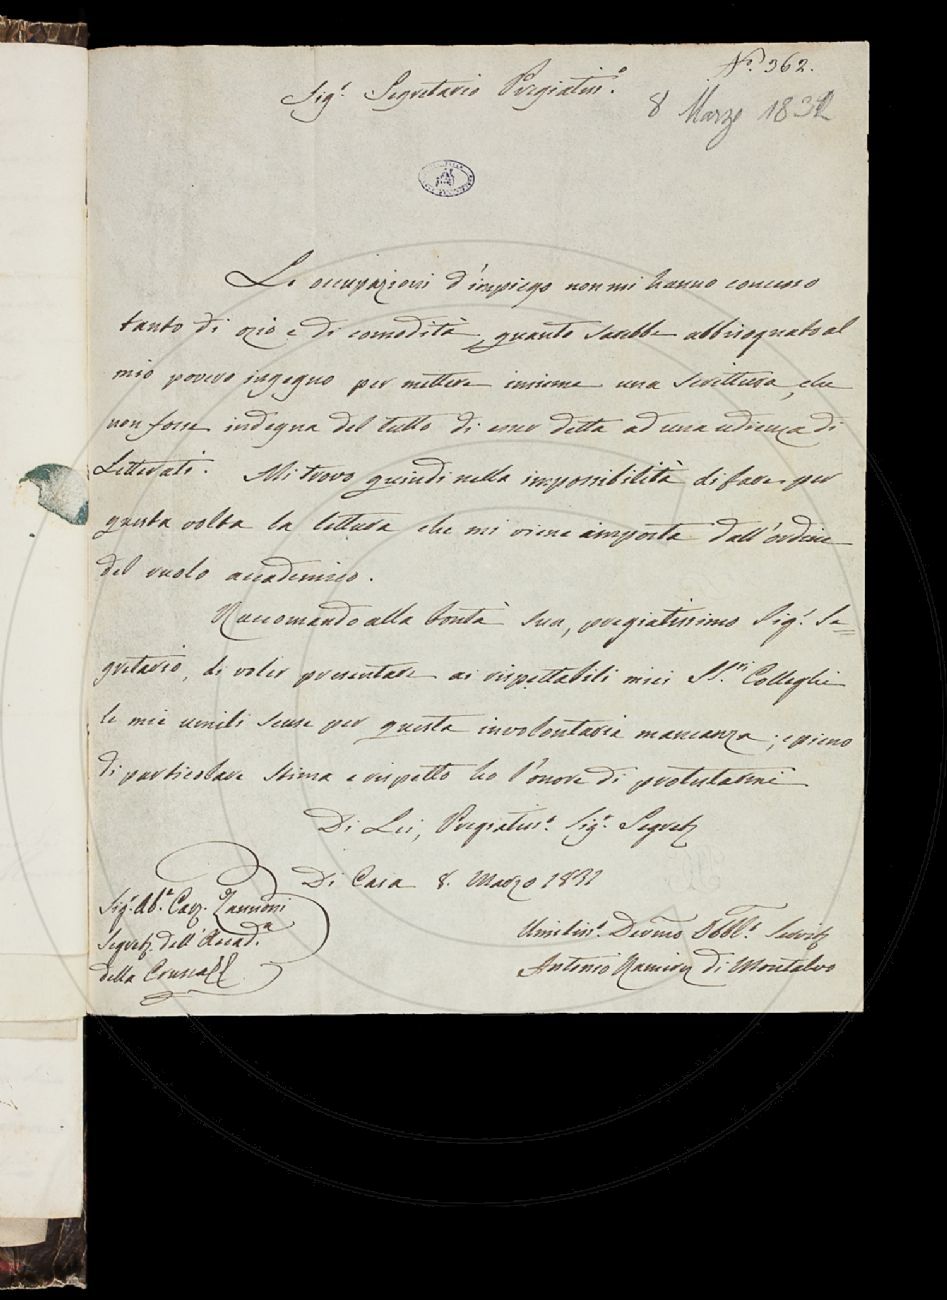 N.º 362.
Sig.r Segretario Pregiatis.o
8 Marzo 1832
Le occupazioni d'impiego non mi hanno concesso
tanto di ozio e di comodità, quanto sarebbe abbisognato al
mio povero ingegno per mettere insieme una scrittura, che
non fosse indegna del tutto di esser detta ad una udienza di
Letterati. Mi trovo quindi nella impossibilità di fare per
questa volta la lettura che mi viene imposta dall'ordine
del ruolo accademico.
Raccomando alla bontà sua, pregiatissimo Sig.r Se=
gretario, di voler presentare ai rispettabili miei SS.ri Colleghi
le mie umili scuse per questa involontaria mancanza; e pieno
di particolare stima e rispetto ho l'onore di protestarmi
Di Lei, Pregiatis.o Sig.r Segret.
Di Casa 8. Marzo 1832
Sig.r Ab.e Cav. Zannoni
Segret. dell'Accad.a
della Crusca
Umilis.o Devmo Obbl.o Servit.
Antonio Ramirez di Montalvo